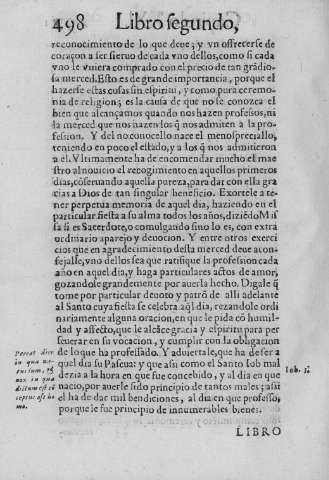 498 Libro segundo,
reconocimiento de lo que deue; y vn offrecerse de
coraçon a ser sieruo de cada vno dellos, como si cada
vno le vuiera comprado con el precio de tan grãdio-
sa merced. Esto es de grande importancia, porque el
hazerse estas cosas sin espiritu, y como pura ceremo-
nia de religion; es la causa de que no se conozca el
bien que alcançamos quando nos hazen professos, ni
la merced que nos hazen los q̃ nos admiten a la pro-
fession. Y del no conocello nace el menospreciallo,
teniendo en poco el estado, y a los q̃ nos admitieron
a èl. Vltimamente ha de encomendar mucho el mae
stro al nouicio el recogimiento en aquellos primeros
dias, cõseruando aquella pureza, para dar con ella gra
cias a Dios de tan singular beneficio. Exortele a te-
ner perpetua memoria de aquel dia, haziendo en el
particular fiesta a su alma todos los años, diziẽdo Mis
sa si es Sacerdote, o comulgando sino lo es, con extra
ordinario aparejo y deuocion. Y entre otros exerci
cios que en agradecimiento desta merced deue acon-
sejalle, vno dellos sea que ratifique la profession cada
año en aquel dia, y haga particulares actos de amor,
gozandole grandemente por auerla hecho. Digale q̃
tome por particular deuoto y patrõ de alli adelante
al Santo cuya fiesta se celebra aq̃l dia, rezandole ordi
nariamente alguna oracion, en que le pida cõ humil-
dad y affecto, que le alcãce gracia y espiritu para per
seuerar en su vocacion, y cumplir con la obligacion
de lo que ha professado. Y aduiertale, que ha de ser a
quel dia su Pascua: y que asi como el Santo Iob mal
dezia a la hora en que fue concebido, y al dia en que
nacio, por auerle sido principio de tantos males; asi
el ha de dar mil bendiciones, al dia en que professo,
porque le fue principio de innumerables bienes.
Pereat dies
in qua na-
tus sum, &
nox in qua
dictum est cõ
ceptus est ho
mo.
Iob. 3.
LIBRO